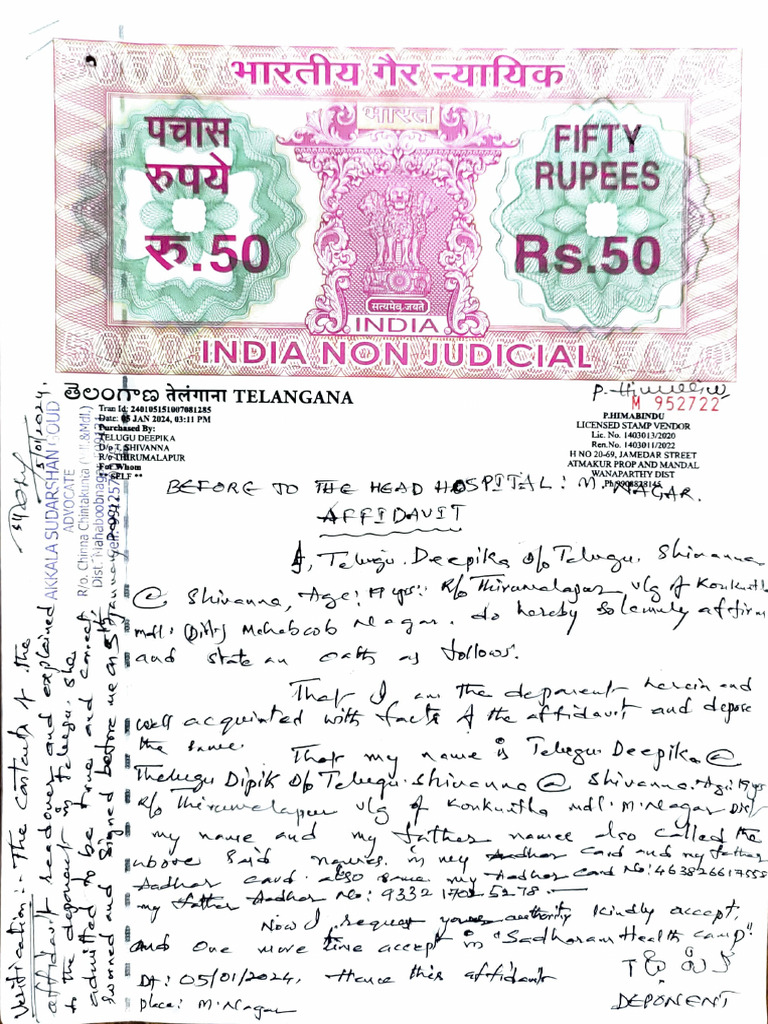 भारतीय गैर न्यायिक
भारत
पचास
रुपये
रु.50
FIFTY
RUPEES
Rs.50
सत्यमेव जयते
INDIA
INDIA NON JUDICIAL
తెలంగాణ तेलंगाना TELANGANA
M 952722
Tran Id: 240105151007081285
Date: 05 JAN 2024, 03:11 PM
Purchased By:
TELUGU DEEPIKA
D/o T. SHIVANNA
R/o THIRUMALAPUR
For Whom
** SELF **
P.HIMABINDU
LICENSED STAMP VENDOR
Lic. No. 1403013/2020
Ren.No. 1403011/2022
H NO 20-69, JAMEDAR STREET
ATMAKUR PROP AND MANDAL
WANAPARTHY DIST
BEFORE TO THE HEAD HOSPITAL: M.NAGAR.
AFFIDAVIT
I, Telugu. Deepika D/o Telugu. Shivanna
@ Shivanna, Age: 19 yrs: R/o Thirumalapur vlg of Konkuntla
mdl: (Dist) Mahaboob Nagar. do hereby solemnly affirm
and state an oath as follows.
That I am the deponent herein and
well acquinted with facts of the affidavit and depose
the same.
That my name is Telugu. Deepika @
Thelugu Dipik D/o Telugu. Shivanna @ Shivanna. Age: 19 yrs
R/o Thirumalapur vlg of Konkuntla mdl: M.Nagar Dist
my name and my father names also called the
above said names in my Aadhar card and my father
Aadhar card also same my Aadhar card No: 463826617555
my father Aadhar No: 9332 1702 5278.
Now I request your authority kindly accept,
and one more time accept in "Sadharam Health Camp"
Dt: 05/01/2024, Hence this affidavit
place: M.Nagar
DEPONENT
Verification:- The contents of the
affidavit readover and explained
to the deponent in Telugu. She
admitted to be true and correct
sworned and signed before me on 5th January
AKKALA SUDARSHAN GOUD
ADVOCATE
R/o. Chinna Chintakunta (Vill & Mdl.)
Dist. Mahaboobnagar